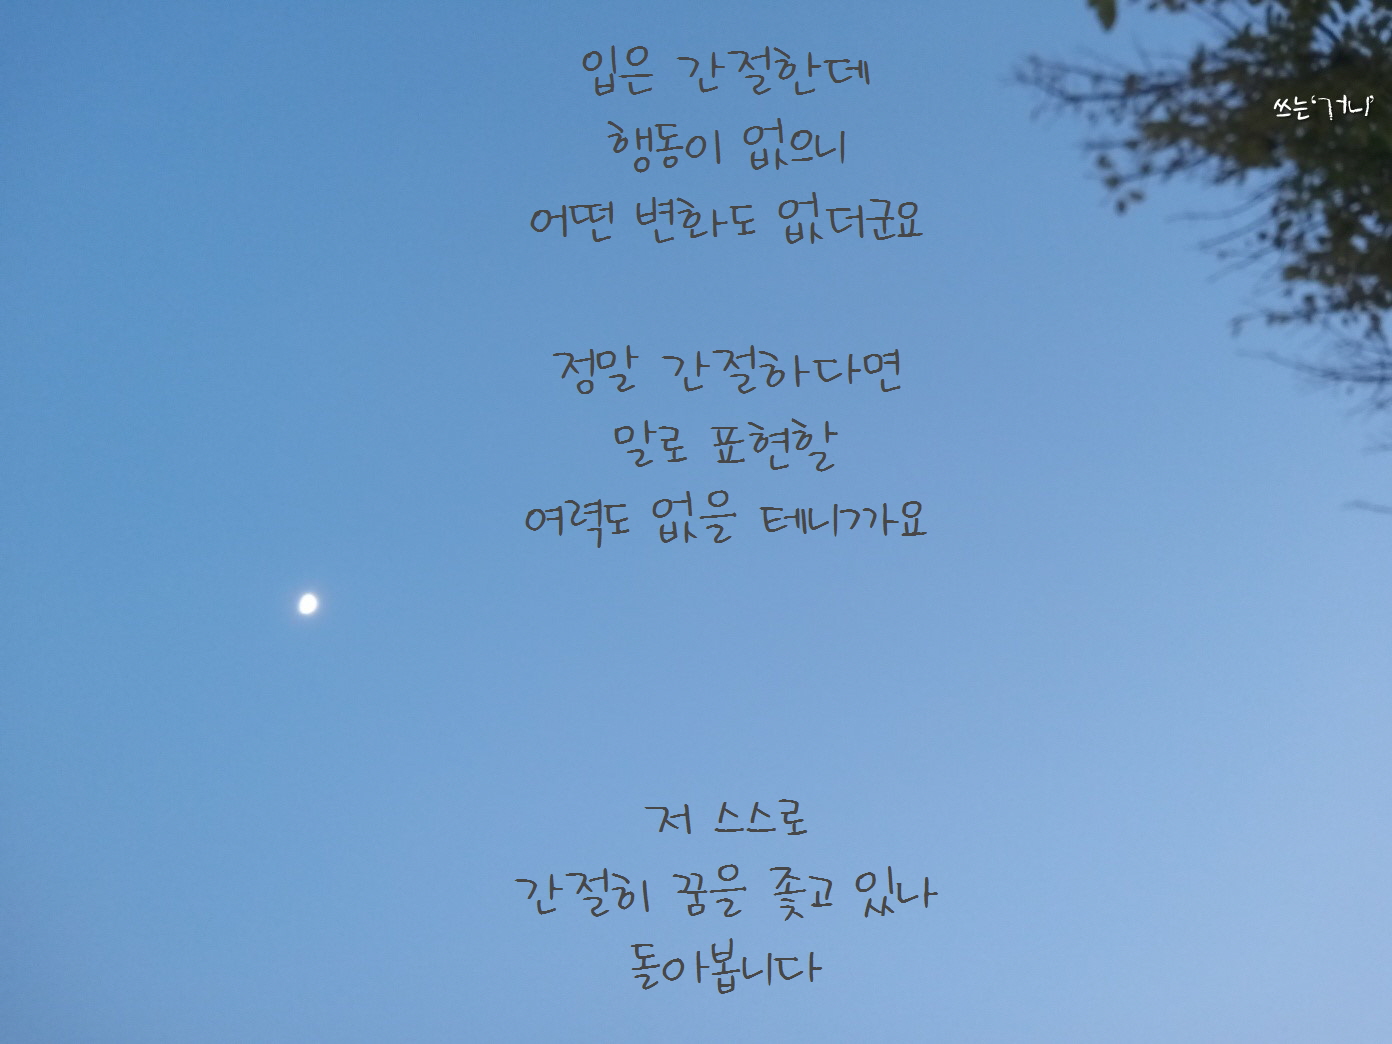 쓰는'거니'
입은 간절한데
행동이 없으니
어떤 변화도 없더군요
정말 간절하다면
말로 표현할
여력도 없을 테니까요
저 스스로
간절히 꿈을 좇고 있나
돌아봅니다